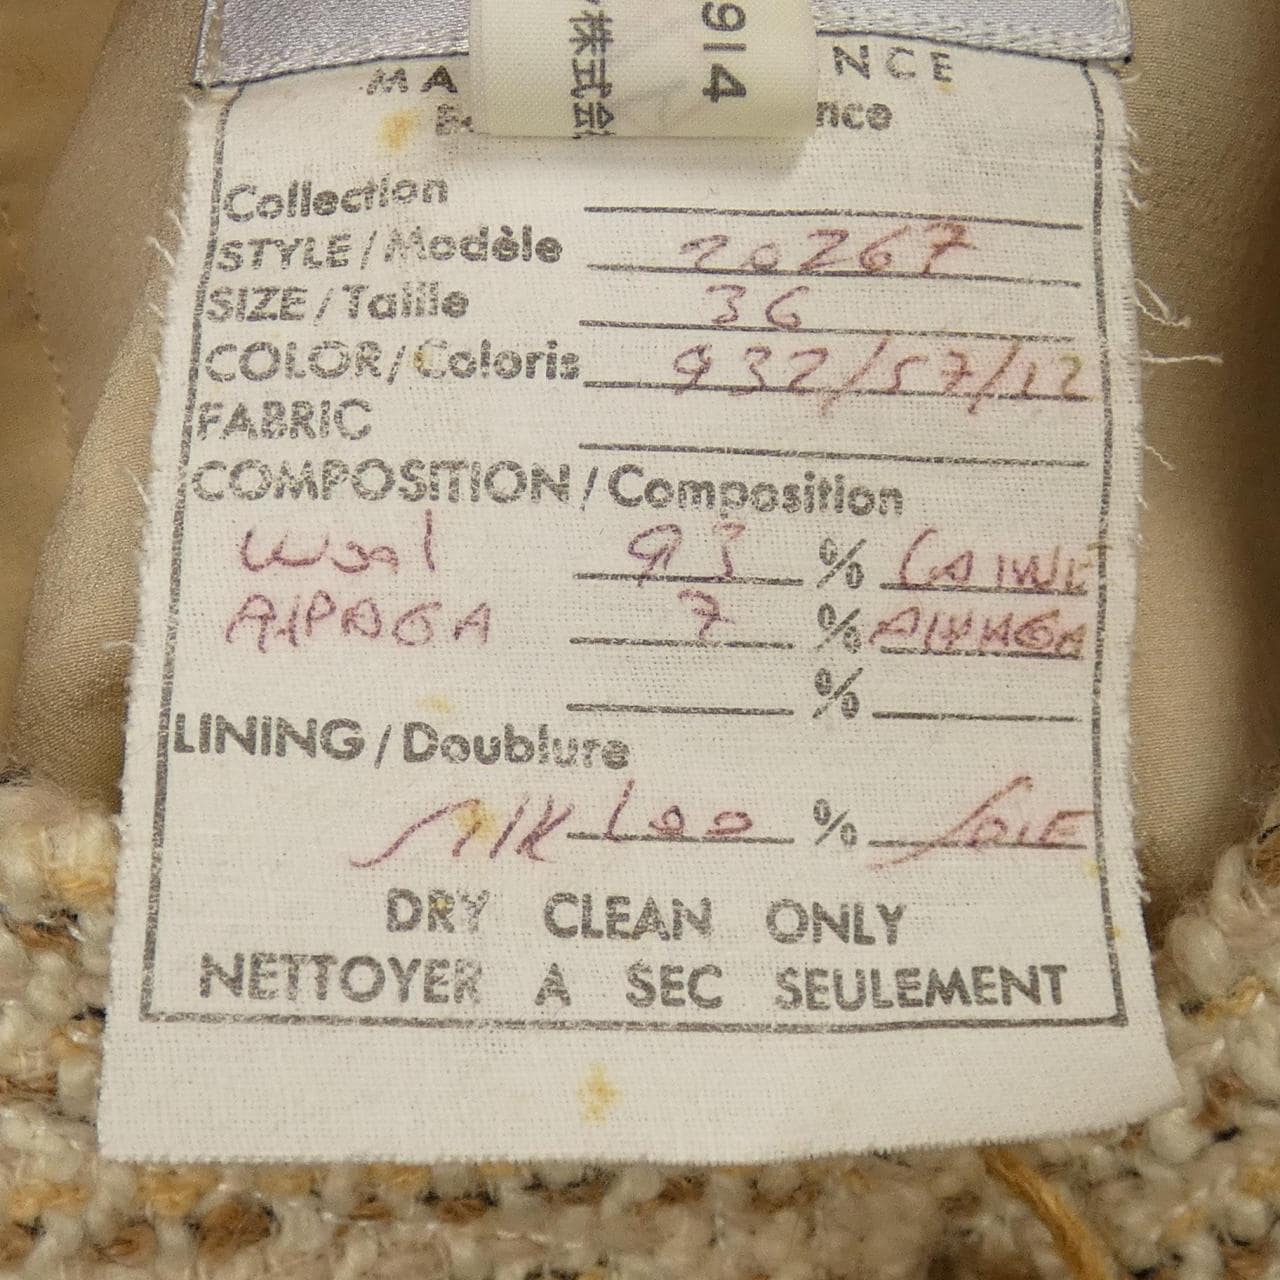 914
株式会
MA NCE
nce
Collection
STYLE / Modèle 20267
SIZE / Taille 36
COLOR / Coloris 932/57/12
FABRIC
COMPOSITION / Composition
Wool 93 % LAINE
AlPAGA 7 % AlPAGA
%
LINING / Doublure
SIK 100 % SOIE
DRY CLEAN ONLY
NETTOYER A SEC SEULEMENT